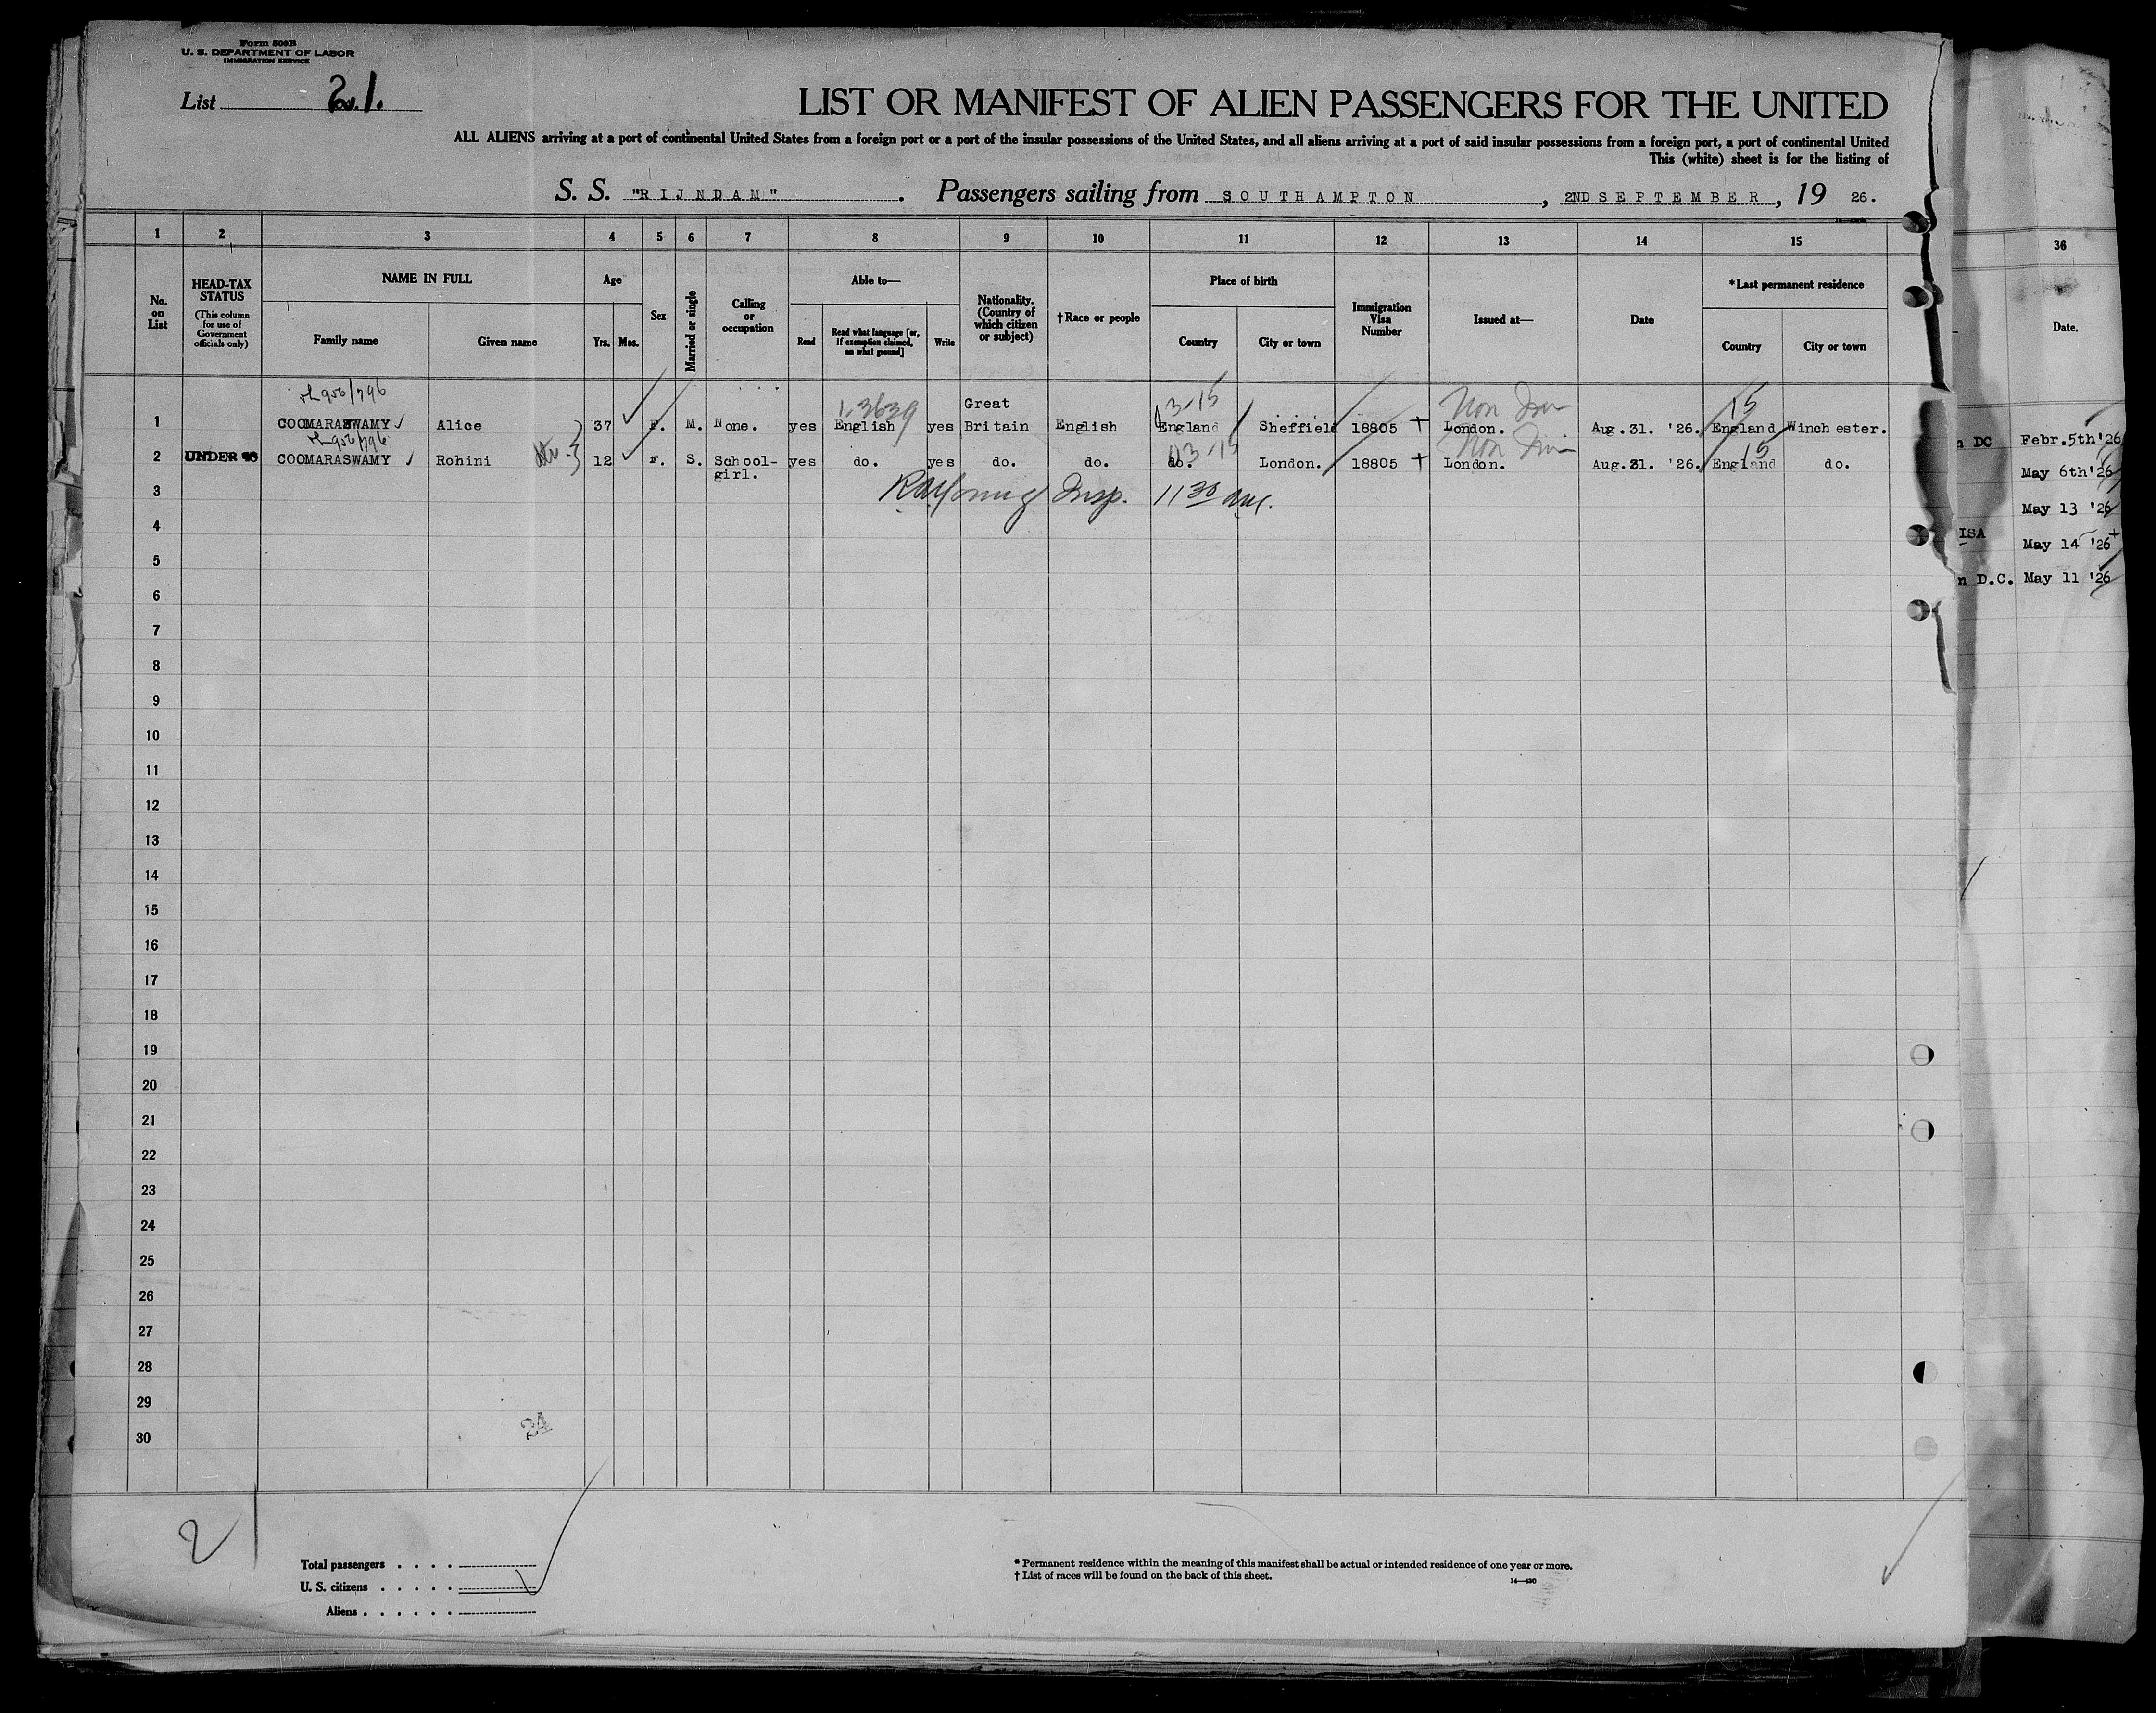 Form 500B
U. S. DEPARTMENT OF LABOR
IMMIGRATION SERVICE
List 1.
LIST OR MANIFEST OF ALIEN PASSENGERS FOR THE UNITED
ALL ALIENS arriving at a port of continental United States from a foreign port or a port of the insular possessions of the United States, and all aliens arriving at a port of said insular possessions from a foreign port, a port of continental United
This (white) sheet is for the listing of
S. S. "RIJNDAM". Passengers sailing from SOUTHAMPTON, 2ND SEPTEMBER, 19 26.
1 2 3 4 5 6 7 8 9 10 11 12 13 14 15 36
No. on List
HEAD-TAX STATUS
(This column for use of Government officials only)
NAME IN FULL
Family name Given name
Age
Yrs. Mos.
Sex
Married or single
Calling or occupation
Able to—
Read Read what language [or, if exemption claimed, on what ground] Write
Nationality. (Country of which citizen or subject)
†Race or people
Place of birth
Country City or town
Immigration Visa Number
Issued at—
Date
*Last permanent residence
Country City or town
Date.
956/796 1-3639 3-15 Non 15
1 COOMARASWAMY Alice 37 F. M. None. yes English yes Great Britain English England Sheffield 18805 London. Aug.31. '26. England Winchester.
956/796 3-15 Non 15
2 UNDER 16 COOMARASWAMY Rohini 12 F. S. School-girl. yes do. yes do. do. do. London. 18805 London. Aug.31. '26. England do.
3 Insp. 11 30 am.
4
5
6
7
8
9
10
11
12
13
14
15
16
17
18
19
20
21
22
23
24
25
26
27
28
29
30
DC Febr.5th'26
May 6th'26
May 13 '26
ISA May 14 '26
n D.C. May 11 '26
2
Total passengers
U. S. citizens
Aliens
* Permanent residence within the meaning of this manifest shall be actual or intended residence of one year or more.
† List of races will be found on the back of this sheet.
14—430